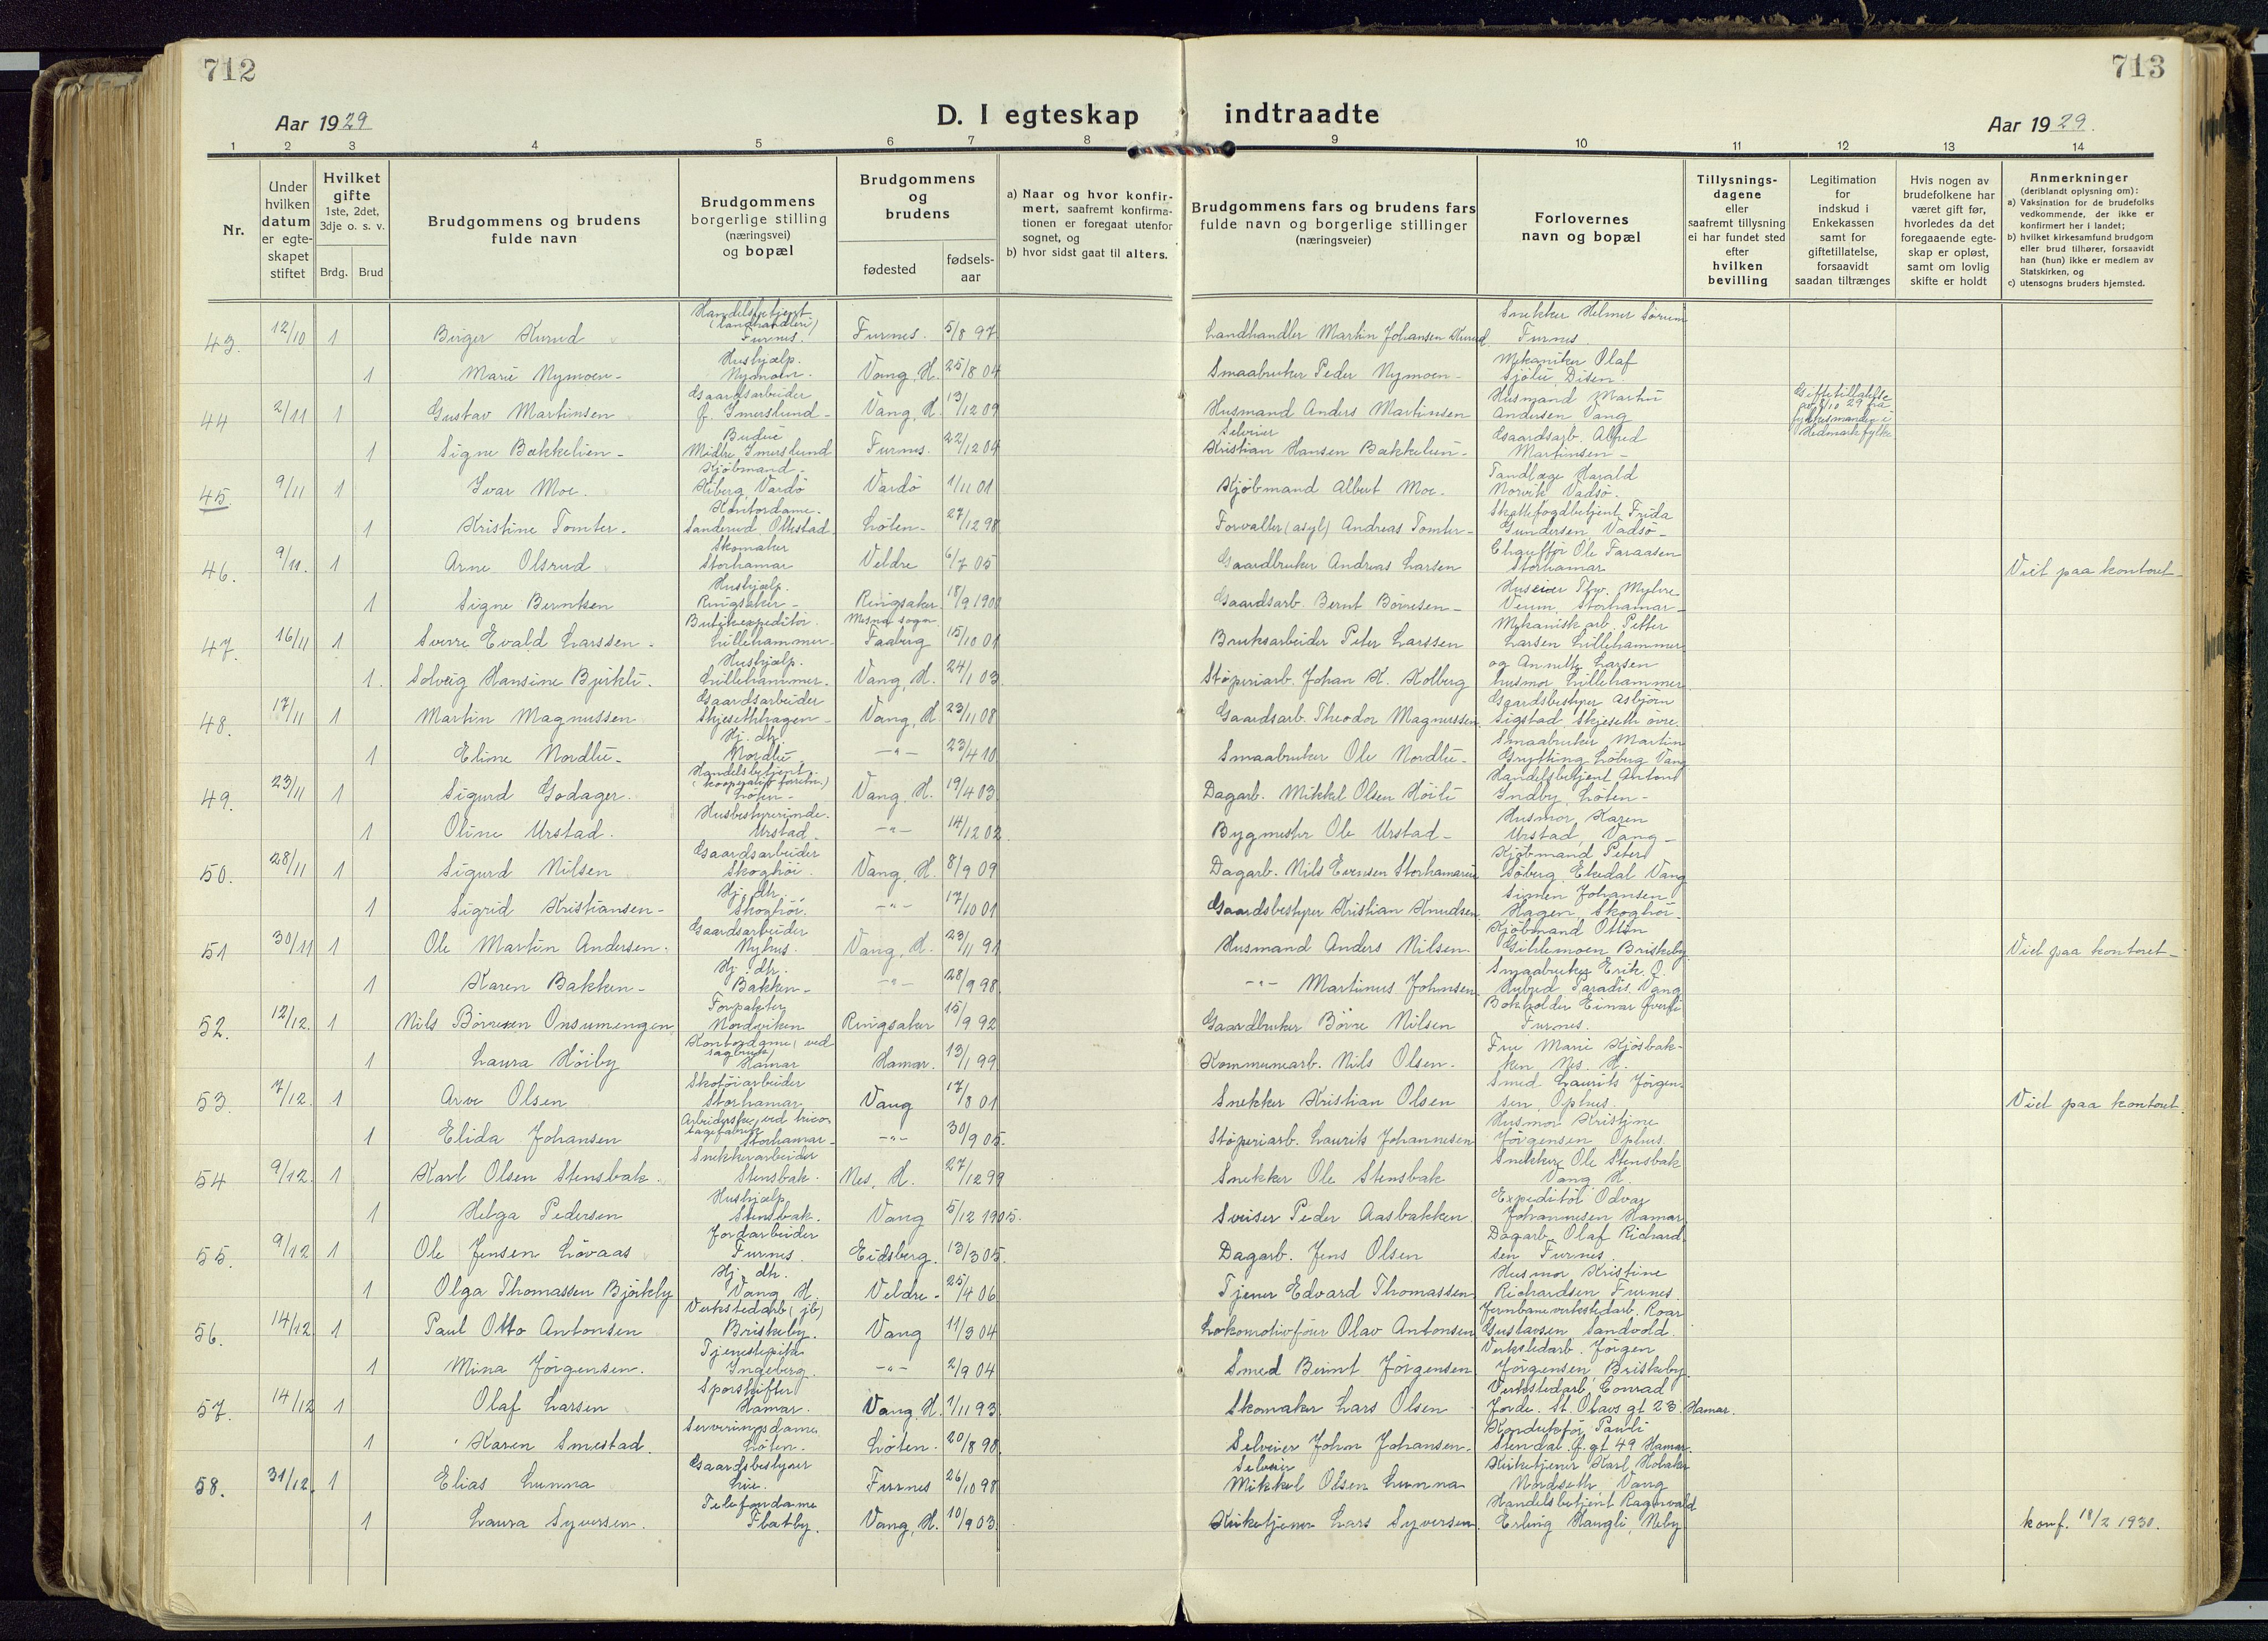 712
713
Aar 1929
D. I egteskap indtraadte
Aar 1929.
1 2 3 4 5 6 7 8 9 10 11 12 13 14
Nr.
Under hvilken datum er egteskapet stiftet
Hvilket gifte 1ste, 2det, 3dje o. s. v.
Brdg. Brud
Brudgommens og brudens fulde navn
Brudgommens borgerlige stilling (næringsvei) og bopæl
Brudgommens og brudens
fødested
fødsels-aar
a) Naar og hvor konfirmert, saafremt konfirmationen er foregaat utenfor sognet, og
b) hvor sidst gaat til alters.
Brudgommens fars og brudens fars fulde navn og borgerlige stillinger (næringsveier)
Forlovernes navn og bopæl
Tillysningsdagene eller saafremt tillysning ei har fundet sted efter hvilken bevilling
Legitimation for indskud i Enkekassen samt for giftetillatelse, forsaavidt saadan tiltrænges
Hvis nogen av brudefolkene har været gift før, hvorledes da det foregaaende egteskap er opløst, samt om lovlig skifte er holdt
Anmerkninger (deriblandt oplysning om):
a) Vaksination for de brudefolks vedkommende, der ikke er konfirmert her i landet;
b) hvilket kirkesamfund brudgom eller brud tilhører, forsaavidt han (hun) ikke er medlem av Statskirken, og
c) utensogns bruders hjemsted.
43. 12/10 1 Birger Kurud Handelsbetjent (landhandleri) Furnes. Furnes. 5/8 97 Landhandler Martin Johansen Kurud Snekker Helmer Sørum Furnes.
1 Marie Nymoen Hushjælp. Nymoen. Vang, H. 25/8 04 Smaabruker Peder Nymoen Mekaniker Olaf Sjölie, Disen.
44 2/11 1 Gustav Martinsen Gaardsarbeider Imerslund Vang, H. 13/12 09 Husmand Anders Martinsen Husmand Martin Andersen Vang Giftetillatelse av 8/10 29 fra fylkesmanden i Hedmark fylke
1 Signe Bækkelien Budeie Midtre Imerslund Furnes. 22/12 04 Selveier Kristian Hansen Bækkelien Gaardsarb. Alfred Martinsen
45. 9/11 1 Ivar Moe. Kjöbmand Kiberg, Vardö Vardö 1/11 01 Kjöbmand Albert Moe. Tandlæge Harald Norvik Vadsö.
1 Kristine Tomter. Kontordame. Sanderud Ottestad Löten 27/12 98 Forvalter (asyl) Andreas Tomter Skattefogdbetjent Frida Gundersen Vadsö
46. 9/11. 1 Arne Olsrud Skomaker Storhamar Veldre 6/7 05 Gaardbruker Andreas Larsen Chauffør Ole Faraasen Storhamar Viet paa kontoret
1 Signe Berntsen Hushjælp. Ringsaker Ringsaker Mesna sogn 18/9 1900 Gaardsarb. Bernt Börresen Huseier Veum, Storhamar
47. 16/11 1 Sverre Evald Larssen Butikexpeditör. Lillehammer Faaberg 15/10 01 Bruksarbeider Peter Larssen Mekanisk arb. Petter Larsen Lillehammer
1. Solveig Hansine Bjerkli. Hushjælp. Lillehammer. Vang, H. 24/1 03 Støperiarb. Johan K. Kolberg og Annette Larsen husmor Lillehammer
48. 17/11 1 Martin Magnussen Gaardsarbeider Skjesethhagen Vang, H. 23/11 08 Gaardsarb. Theodor Magnussen Gaardsbestyrer Asbjörn Sigstad, Skjeseth övre.
1 Eline Nordlie Hj. dtr. Nordlie —"— 23/4 10 Smaabruker Ole Nordlie Smaabruker Martin Grytting Löberg Vang
49. 23/11 1 Sigurd Godager. Handelsbetjent (kooperativ foretn.) Löten Vang, H. 19/4 03 Dagarb. Mikkel Olsen Höili Handelsbetjent Anton Indby, Löten
1 Oline Urstad. Husbestyrerinde. Urstad —"— 14/12 02. Bygmester Ole Urstad Husmor Karen Urstad, Vang
50. 28/11 1 Sigurd Nilsen Gaardsarbeider Skoghöi. Vang, H. 8/9 09 Dagarb. Nils Evensen Storhamarеie Kjöbmand Peter Söberg, Ekedal Vang
1 Sigrid Kristiansen Hj. dtr. Skoghöi. —"— 17/10 01 Gaardsbestyrer Kristian Knudsen Simen Johansen Hagen, Skoghöi
51 30/11 1 Ole Martin Andersen. Gaardsarbeider Nyhus. Vang, H. 23/11 91 Husmand Anders Nilsen. Kjöbmand Otto Gihlemoen, Briskeby Viet paa kontoret
1 Karen Bakken Hj. dtr. Bakken —"— 28/9 98 —"— Martinus Johnsen Smaabruker Erik O. Paradis Vang
52. 12/12. 1 Nils Börresen Onsumengen Forpakter Nordviken Ringsaker 15/9 92 Gaardbruker Börre Nilsen Bokholder Einar Furnes.
1 Laura Höiby Kontordame (ved sagbruk) Hamar Hamar. 13/1 99 Kommunearb. Nils Olsen. Fru Marie Kjösbakken Nes. H.
53. 7/12. 1 Arve Olsen Skotöiarbeider Storhamar Vang 17/8 01 Snekker Kristian Olsen Smed Laurits Jörgensen Ophus. Viet paa kontoret.
1 Elida Johansen Arbeiderske, ved tricotagefabrik Storhamar —"— 30/9 05 Støperiarb. Laurits Johannesen Husmor Kristine Jörgensen Ophus.
54 9/12. 1 Karl Olsen Stensbak. Snekkerarbeider Stensbak. Nes, H. 27/12 99 Snekker Ole Stensbak Snekker Ole Stensbak Vang H.
1 Helga Pedersen Hushjælp Stensbak. Vang 5/12 1905. Sveiser Peder Aasbakken Expeditör Odvar Johannesen Hamar
55. 9/12 1 Ole Jensen Lövaas Jordarbeider Furnes. Eidsberg. 13/3 05. Dagarb. Jens Olsen Dagarb. Olaf Richardsen Furnes.
1 Olga Thomassen Björkly Hj. dtr. Vang H. Veldre 25/4 06 Tjener Edvard Thomassen Husmor Kristine Richardsen Furnes.
56. 14/12 1 Paul Otto Antonsen Verkstedarb (jb) Briskeby. Vang 11/3 04 Lokomotivförer Olav Antonsen Jernbaneverkstedarb. Roar Gustavsen Sandvold.
1 Mina Jörgensen. Tjenestepike Ingeberg. —"— 2/9 04 Smed Bernt Jörgensen Verkstedarb. Jörgen Jörgensen, Briskeby
57. 14/12 1 Olaf Larsen Sporskifter Hamar. Vang, H. 1/11 93 Skomaker Lars Olsen Verkstedarb. Conrad Jorde. St. Olavs gt 23 Hamar.
1 Karen Smestad. Serveringsdame Löten. Löten. 20/8 98 Selveier Johan Johansen. Konduktör Pauli Stendal gt 49 Hamar.
58. 31/12. 1 Elias Lunna Gaardsbestyrer Lie. Furnes 26/10 98 Selveier Mikkel Olsen Lunna Kirketjener Karl Hobæk Nordseth, Vang
1 Laura Syversen. Telefondame Flatby. Vang, H. 10/9 03 Kirketjener Lars Syversen. Handelsbetjent Ragnvald Erling Haugli, Neby konf. 18/2 1930.